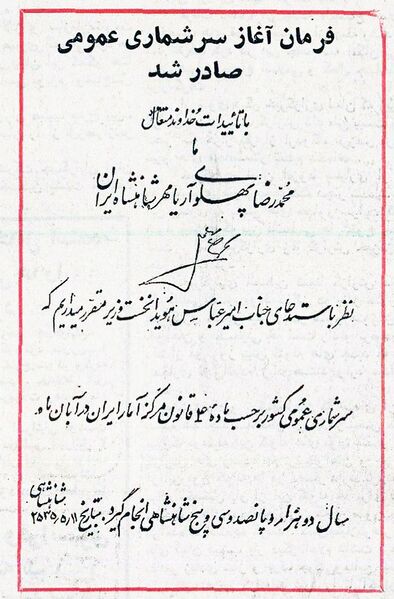 فرمان آغاز سرشماری عمومی
صادر شد
با تائیدات خداوند متعال
ما
محمدرضا پهلوی آریامهر شاهنشاه ایران
نظر باستدعای جناب امیرعباس هویدا نخست وزیر مقرر میداریم که
سرشماری عمومی کشور برحسب مادهٔ ۴ قانون مرکز آمار ایران در آبان ماه
سال دو هزار و پانصد و سی و پنج شاهنشاهی انجام گیرد. بتاریخ ۲۵۳۵/۵/۱۱ شاهنشاهی